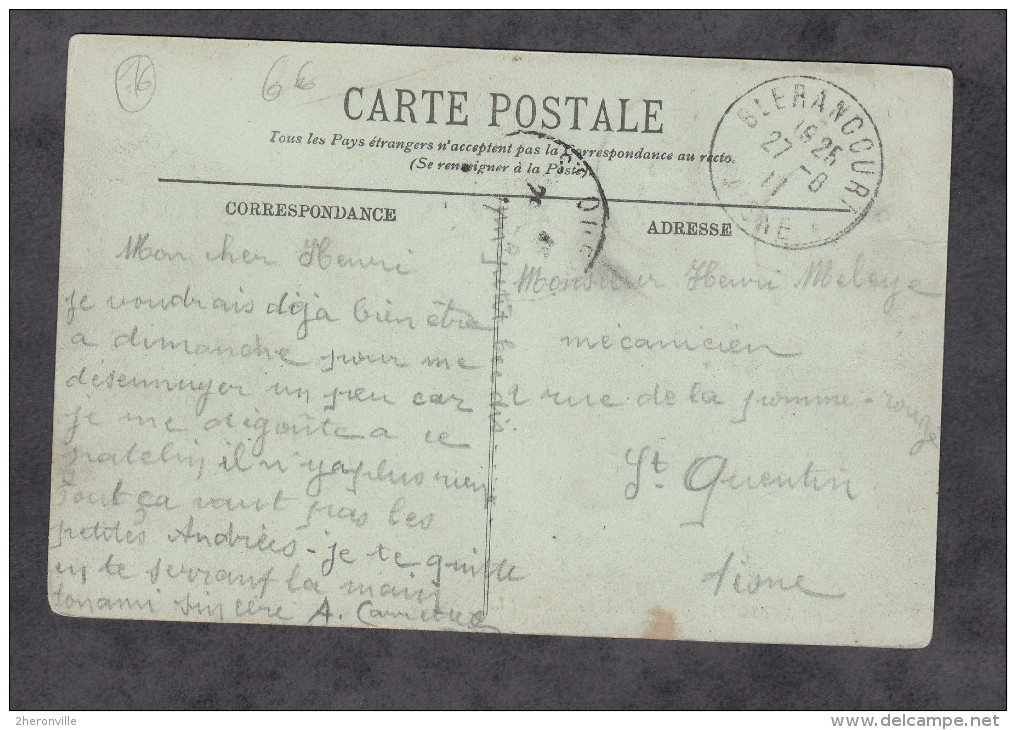 16
66
CARTE POSTALE
Tous les Pays étrangers n'acceptent pas la Correspondance au recto.
(Se renseigner à la Poste)
BLERANCOURT
19 25
27 -8
11
AISNE
CORRESPONDANCE
ADRESSE
Mon cher Henri
je voudrais déja bien être
a dimanche pour me
désennuyer un peu car
je me dégoûte a ce
patelin il n'y a plus rien
tout ça vaut pas les
petites Andrées - je te quitte
en te serrant la main
ton ami sincère A.
Monsieur Henri Meleye
mécanicien
rue de la pomme-rouge
St Quentin
Aisne
2heronville
delcampe.net